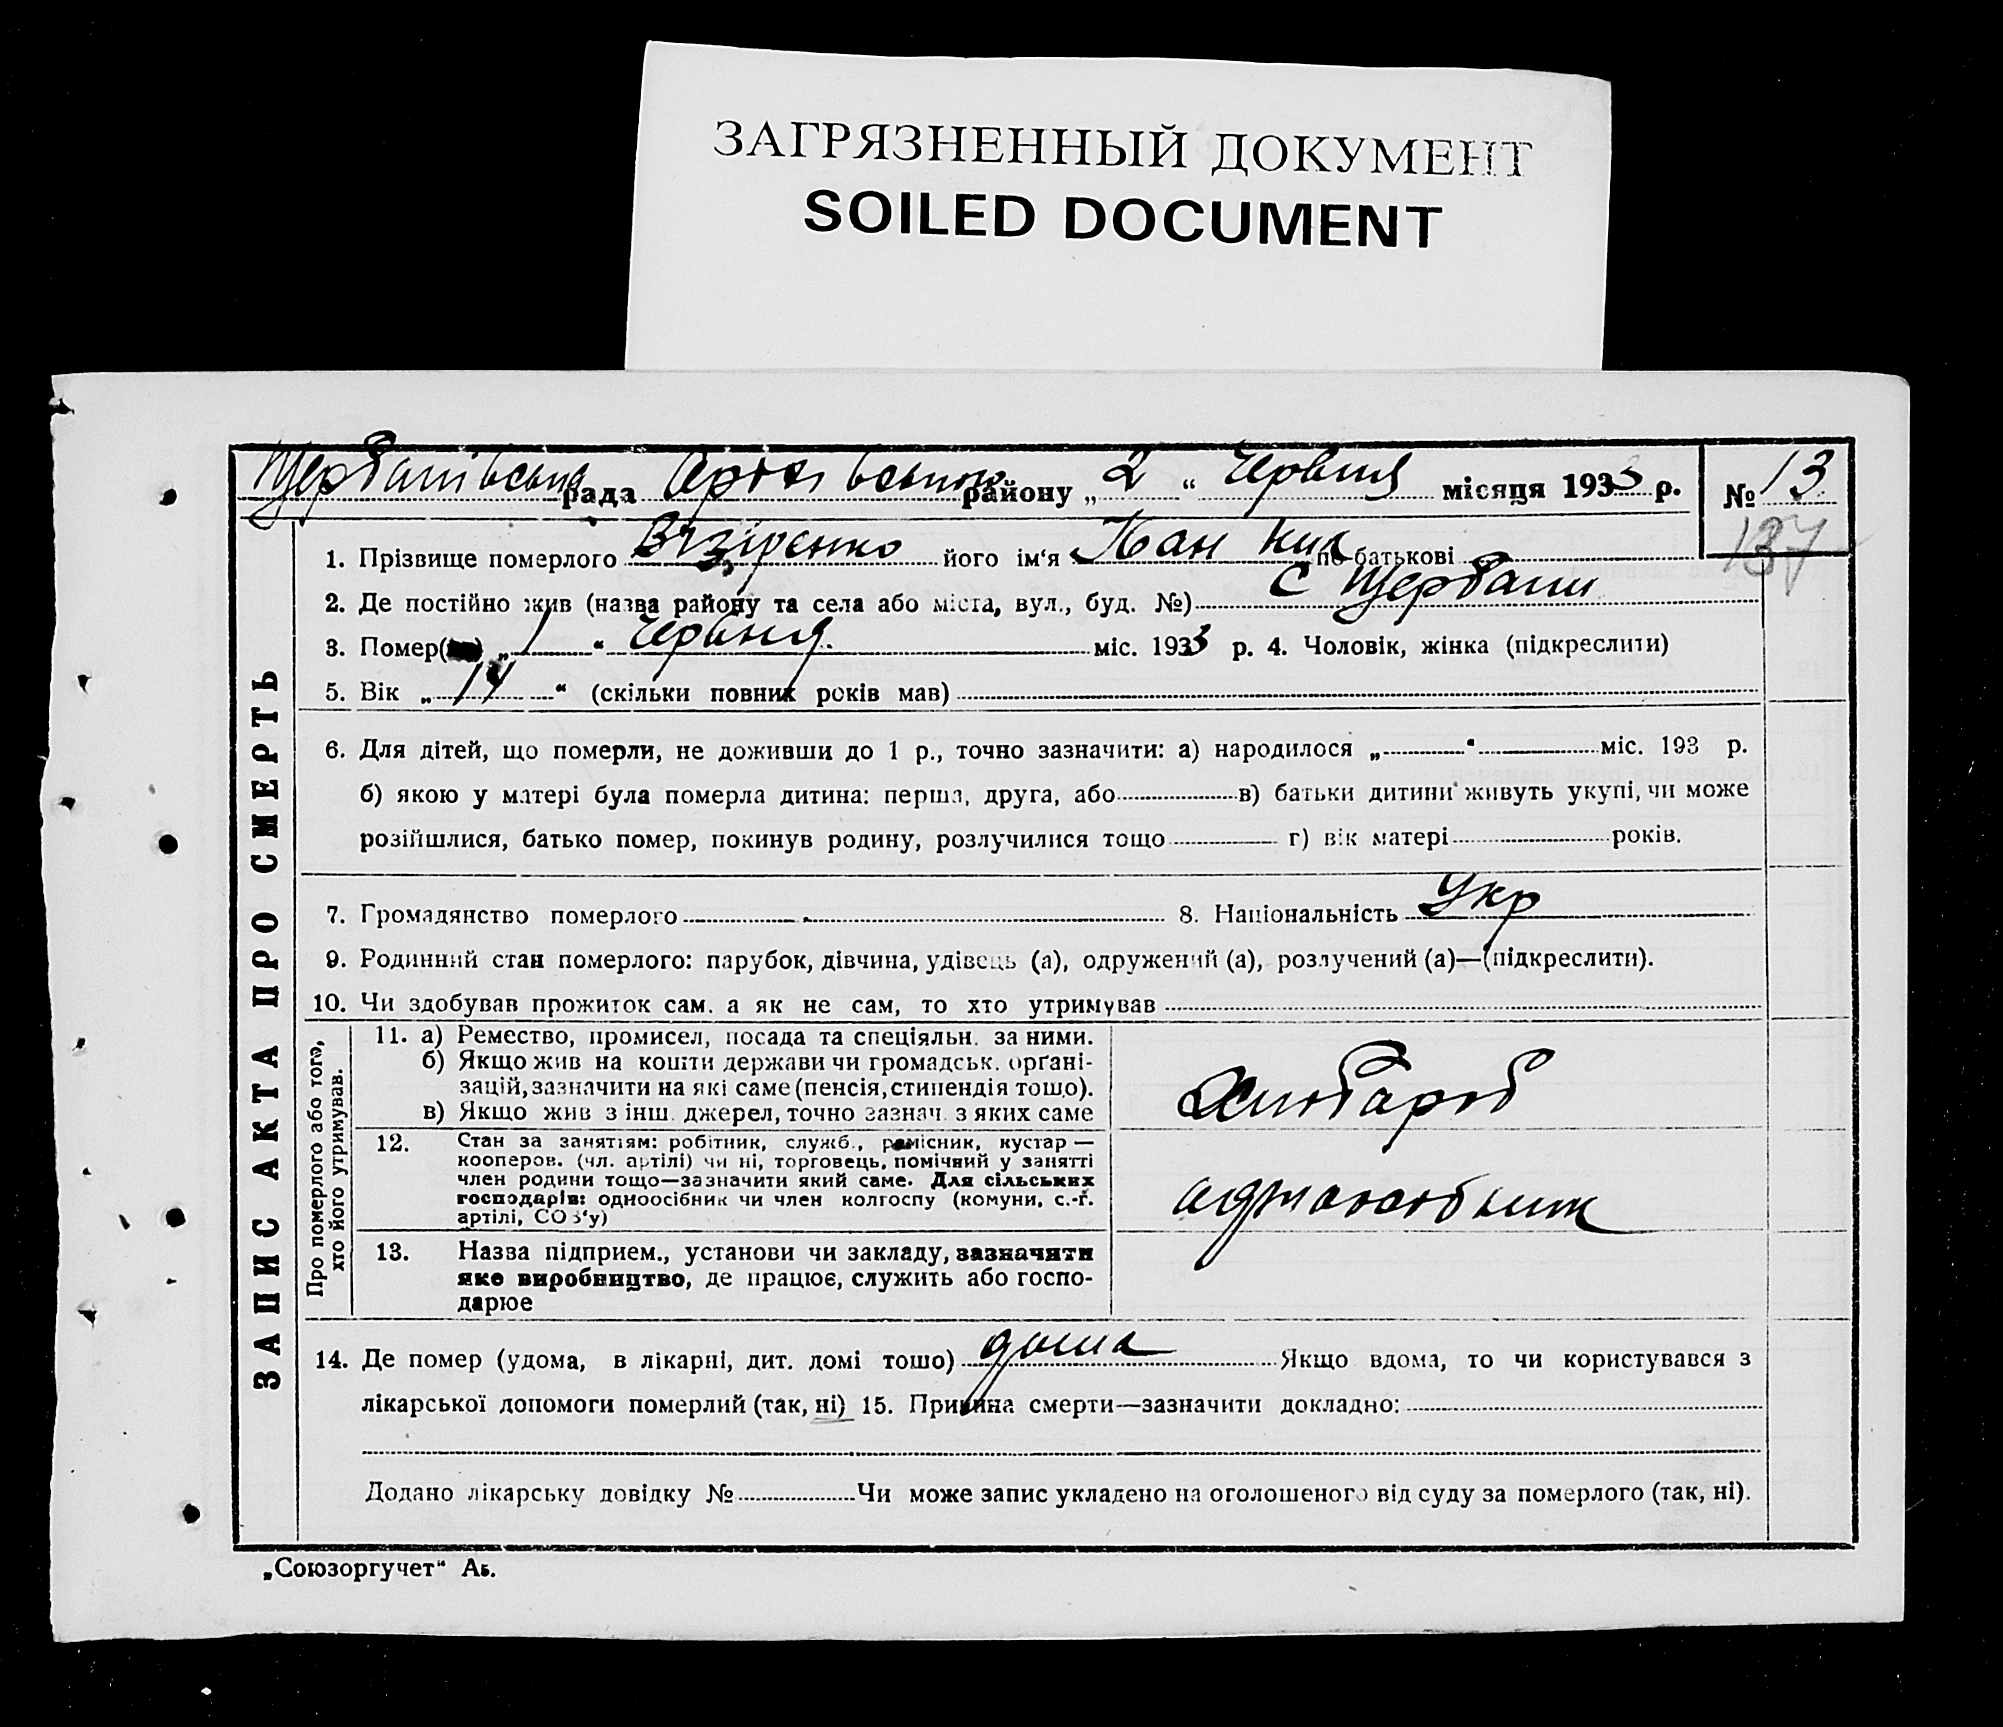 ЗАГРЯЗНЕННЫЙ ДОКУМЕНТ
SOILED DOCUMENT
рада району „2“ Червня місяця 1933 р. № 13
137
1. Прізвище померлого його ім‘я по батькові
2. Де постійно жив (назва району та села або міста, вул., буд. №) с Щербани
3. Помер „1“ Червня міс. 1933 р. 4. Чоловік, жінка (підкреслити)
5. Вік „14“ (скільки повних років мав)
6. Для дітей, що померли, не доживши до 1 р., точно зазначити: а) народилося „ “ міс. 193 р.
б) якою у матері була померла дитина: перша, друга, або в) батьки дитини живуть укупі, чи може
розійшлися, батько помер, покинув родину, розлучилися тощо г) вік матері років.
7. Громадянство померлого 8. Національність Укр
9. Родинний стан померлого: парубок, дівчина, удівець (а), одружений (а), розлучений (а)—(підкреслити).
10. Чи здобував прожиток сам. а як не сам, то хто утримував
ЗАПИС АКТА ПРО СМЕРТЬ
Про померлого або того,
хто його утримував.
11. а) Ремество, промисел, посада та спеціяльн. за ними.
б) Якщо жив на кошти держави чи громадськ. орґані-
зацій, зазначити на які саме (пенсія, стипендія тощо).
в) Якщо жив з інш. джерел, точно зазнач. з яких саме
Хлібароб
12. Стан за заняттям: робітник, служб., ремісник, кустар —
кооперов. (чл. артілі) чи ні, торговець, помічний у занятті
член родини тощо—зазначити який саме. Для сільських
господарів: одноосібник чи член колгоспу (комуни, с.-г.
артілі, СОЗ‘у)
одноособник
13. Назва підприєм., установи чи закладу, зазначити
яке виробництво, де працює, служить або госпо-
дарює
14. Де помер (удома, в лікарні, дит. домі тощо) дома Якщо вдома, то чи користувався з
лікарської допомоги померлий (так, ні) 15. Причина смерти—зазначити докладно:
Додано лікарську довідку № Чи може запис укладено на оголошеного від суду за померлого (так, ні).
„Союзоргучет“ Аб.